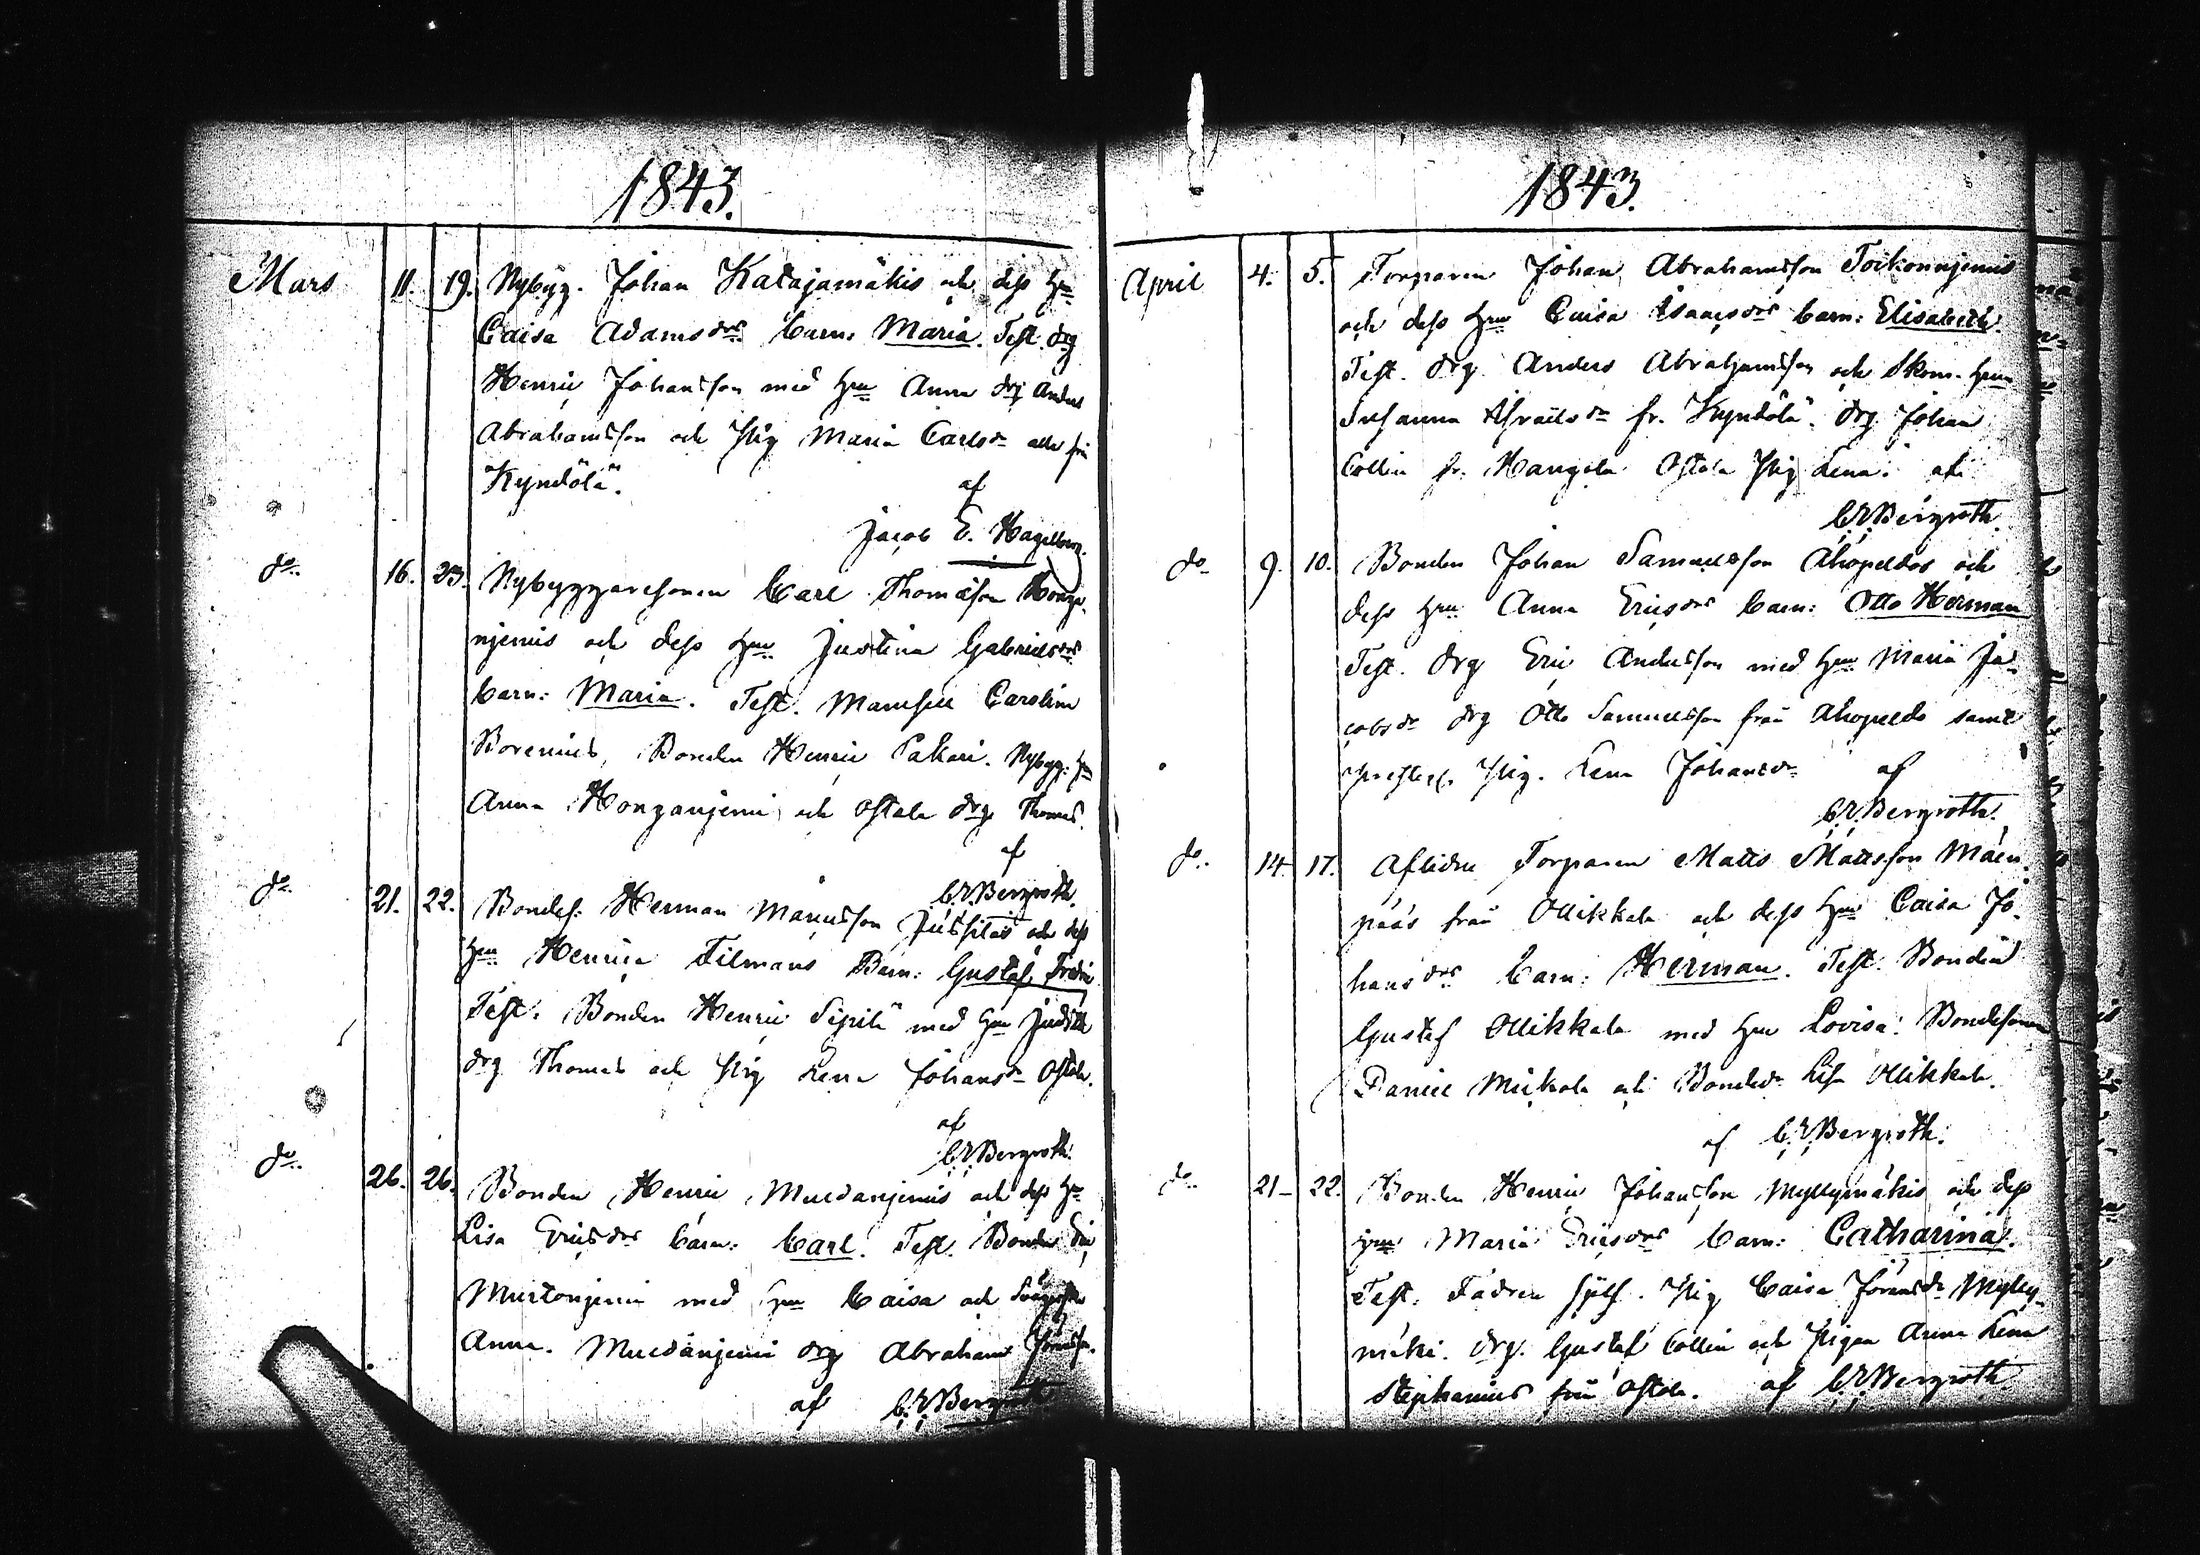 1843.
Mars 11. 19. Nybyg. Johan Katajamäkis och dess Hu
Caisa Adamsdrs barn: Maria. Test. Drg
Henric Johansson med Hu Anna Drg Anders
Abrahamsson och Pig Maria Carlsdr alla fr
Kyndölä.
af
Jacob E. Hagelberg.
do 16. 23. Nybyggaresonen Carl Thomasson Honga-
njemis och dess Hu Justina Gabrielsdrs
barn: Maria. Test. Mamsell Carolina
Borenius, Bonden Henric Pakari. Nybyg: Hu
Anna Honganjemi och Ostola Drg Thomas.
af
C.E.Bergroth.
do 21. 22. Bondes. Herman Månsson Jussilas och dess
Hu Henrica Tilmans Barn: Gustaf Fredric
Test. Bonden Henric Sipilä med Hu Judith
Drg Thomas och Pig Lena Johansdr Ostola.
af
C.E.Bergroth.
do 26. 26. Bonden Henric Muldanjemis och dess Hu
Lisa Ericsdrs barn: Carl. Test. Bonden Eric
Murtonjemi med Hu Caisa och
Anna. Muldanjemi Drg Abraham
af C.E.Bergroth
1843.
April 4. 5. Torparen Johan Abrahamsson Toikonnjemis
och dess Hu Caisa Isaacsdrs barn: Elisabeth.
Test. Drg Anders Abrahamsson och Skom. Hu
Susanna Israelsdr fr. Kyndölä. Drg Johan
Collin fr. Hangela Ostola Pig Lena. af
C.E.Bergroth.
do 9. 10. Bonden Johan Samuelsson Ahopeldos och
dess Hu Anna Ericsdrs barn: Otto Herman
Test. Drg Eric Andersson med Hu Maria Ja-
cobsdr Drg Otto Samuelsson från Ahopeldo samt
Pig. Lena Johansdr af
C.E.Bergroth.
do 14. 17. Aflidne Torparen Matts Mattsson Mäen-
pääs från Ollikkala och dess Hu Caisa Jo-
hansdrs barn: Herman. Test. Bonden
Gustaf Ollikkala med Hu Lovisa. Bondesonen
Daniel Mickola och Bondedr Lisa Ollikkala.
af C.E.Bergroth.
do 21. 22. Bonden Henric Johansson Myllymäkis och dess
Hu Maria Ericsdrs barn: Catharina.
Test. Fadren sjelf. Pig Caisa Jöransdr Mylly-
mäki. Drg. Gustaf Collin och Pigan Anna Lena
Stephanius från Ostola. af C.E.Bergroth